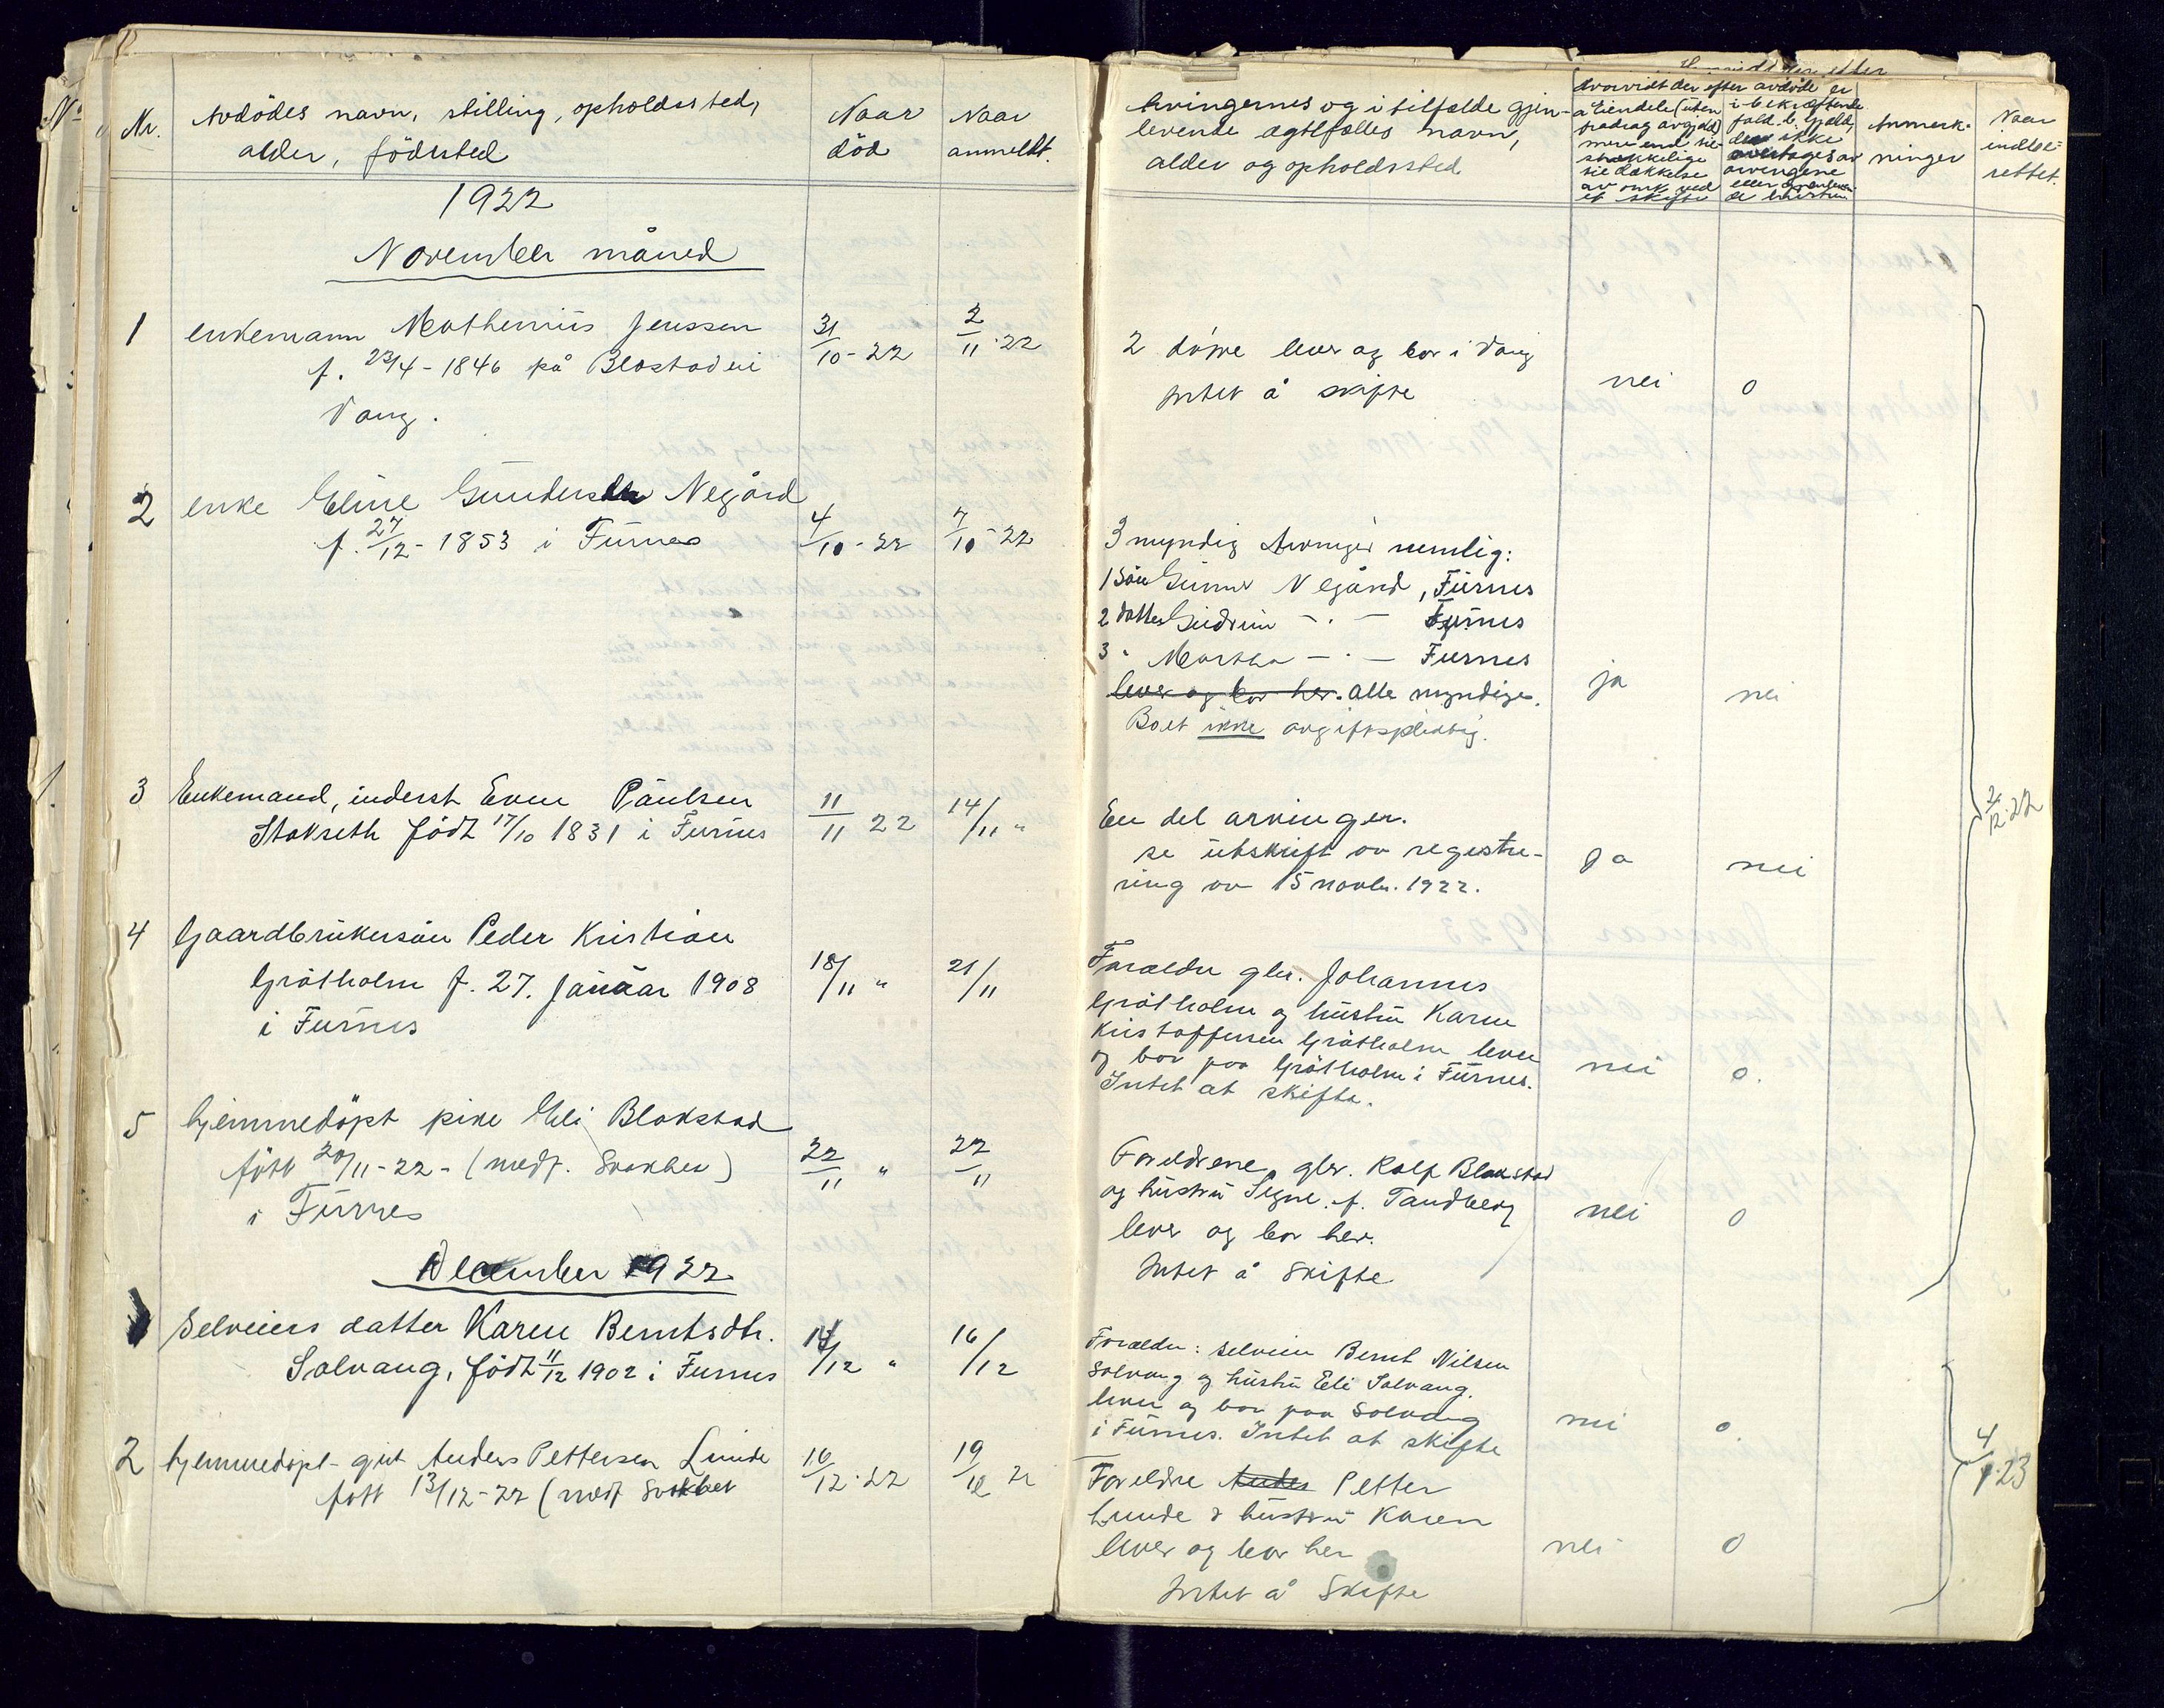 Nr.
Avdödes navn, stilling, opholdssted,
alder, födested
Naar
död
Naar
anmeldt.
1922
November måned
1 enkemann Mathenius Jenssen
f. 23/4-1846 på
Vang.
31/10-22
2/11-22
2 enke Eline Gundersen Negård
f. 27/12-1853 i Furnes
4/10-22
7/10-22
3 Enkemand, inderst Even Paulsen
Stokseth födt 17/10 1831 i Furnes
11/11 22
14/11 "
4 Gaardbrukersön Peder Kristian
Gråtholm f. 27. Januar 1908
i Furnes
18/11 "
21/11
5 hjemmedöpt pike Eli Blakstad
født 20/11-22-(medf. Svakhet)
i Furnes
22/11 "
22/11
December 1922
Selveiers datter Karen Berntsdtr.
Solvang, födt 11/12 1902 i Furnes
/12 "
16/12
2 hjemmedøpt gut Anders Pettersen Lunde
født 13/12-22 (medf Svakhet
16/12-22
19/12 22
Arvingernes og i tilfælde gjen-
levende ægtefælles navn,
alder og opholdssted
Hvorvidt der efter avdöde er
a Eiendele (uten
fradrag av gjeld)
mere end til-
strækkelige
til dækkelse
av omk. ved
et skifte
i bekræftende
fald b. Gjæld,
der ikke
overtages av
arvingene
eller gjenleven-
de hustru
Anmerk-
ninger
Naar
indbe-
rettet.
2 døtre lever og bor i Vang
Intet å skifte
nei
0
3 myndig Arvinger nemlig:
1 Sön Gunnar Negård, Furnes
2 datter Gudrun -.- Furnes
3 " Martha -.- Furnes
lever og bor her. alle myndige.
Boet ikke avgiftspliktig.
ja
nei
En del arvinger.
se utskrift av registre-
ring av 15 novbr. 1922.
ja
nei
2/12-22
Forældre gbr. Johannes
Gråtholm og hustru Karen
Kristoffersen Gråtholm lever
og bor paa Gråtholm i Furnes.
Intet at skifte.
nei
0.
Foreldrene, gbr. Rolf Blakstad
og hustru Signe f. Tandberg
lever og bor her.
Intet å skifte
nei
0
Forældre: selveier Bernt Nilsen
Solvang og hustru Eli Solvang.
lever og bor paa Solvang
i Furnes. Intet at skifte
nei
0.
Foreldre Anders Petter
Lunde & hustru Karen
lever og bor her
Intet å skifte
nei
0
4/1-23